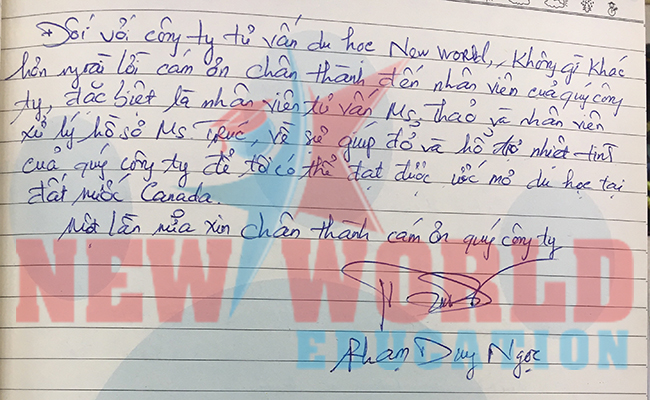 * Đối với công ty tư vấn du học New World, không gì khác
hơn ngoài lời cám ơn chân thành đến nhân viên của quý công
ty, đặc biệt là nhân viên tư vấn Ms. Thảo và nhân viên
xử lý hồ sơ Ms. Trúc, về sự giúp đỡ và hỗ trợ nhiệt tình
của quý công ty để tôi có thể đạt được ước mơ du học tại
đất nước Canada.
Một lần nữa xin chân thành cám ơn quý công ty
NEW WORLD
EDUCATION
Phạm Duy Ngọc